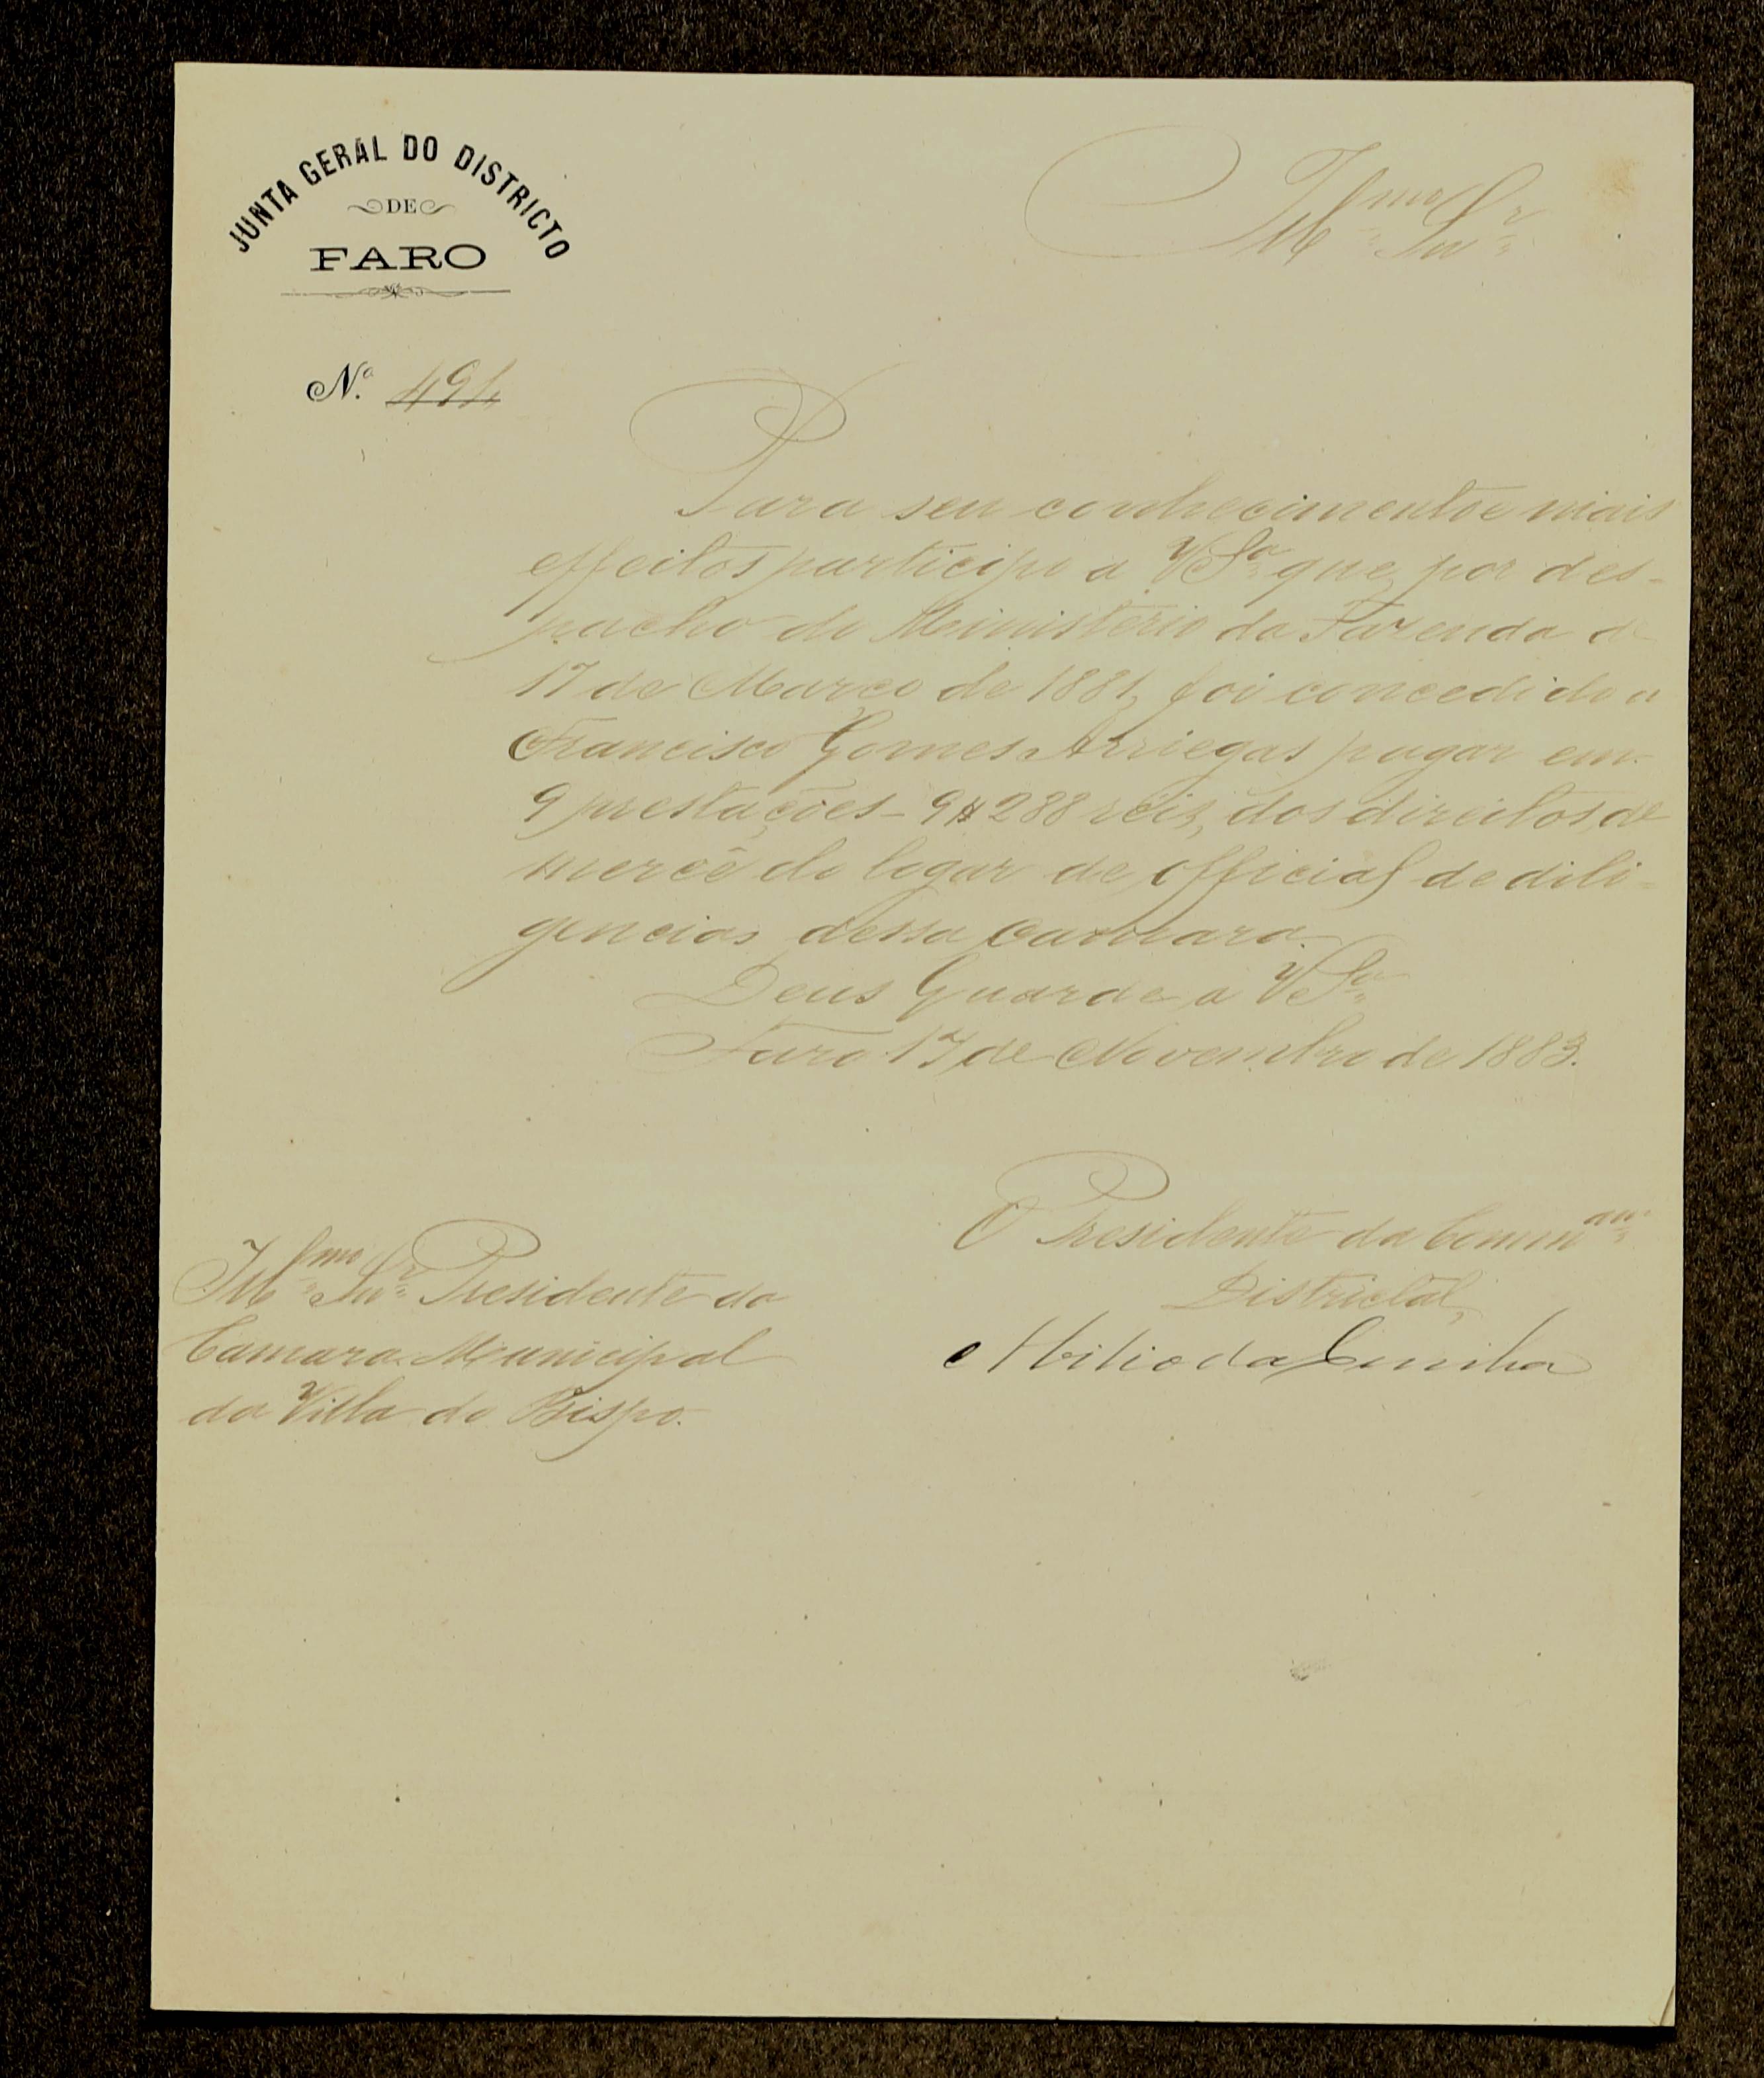 JUNTA GERAL DO DISTRICTO
DE
FARO
Illmo Snr
N.º 494
Para seu conhecimento e mais
effeitos participo a VSª que, por des-
pacho do Ministerio da Fazenda de
17 de Março de 1881, foi concedido a
Francisco Gomes Arriegas pagar em
9 prestações - 9$288 reis, dos direitos de
mercê do logar de official de dili-
gencias dessa camara.
Deus Guarde a VSª
Faro 17 de Novembro de 1883.
O Presidente da Commam
Districtal,
Abilio da Cunha
Illmo Snr Presidente da
Camara Municipal
da Villa do Bispo.